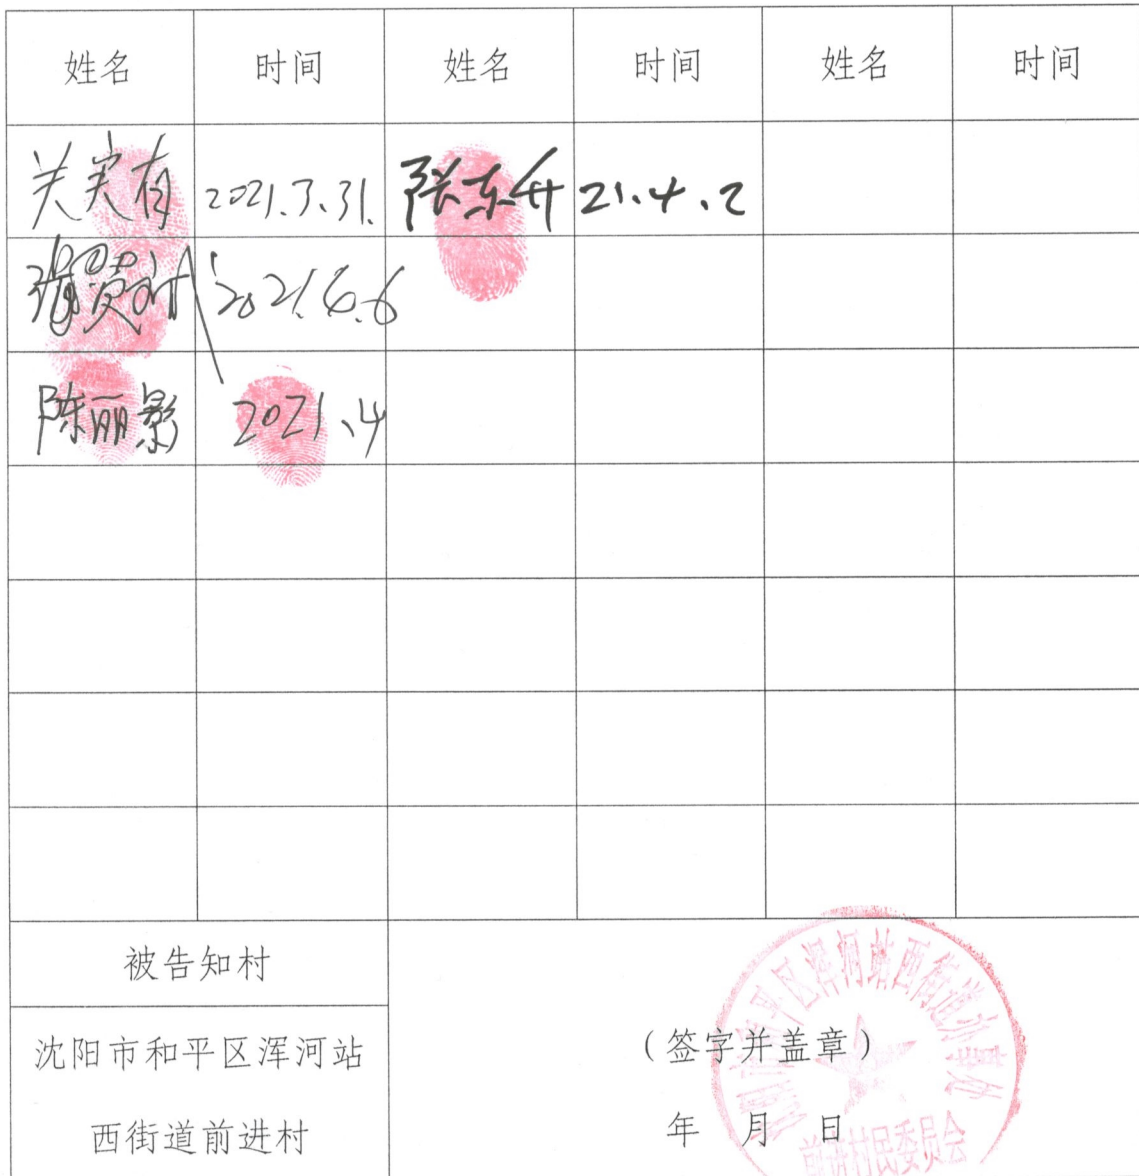 姓名 时间 姓名 时间 姓名 时间
关宪有 2021.3.31. 张东升 21.4.2
2021.4.6
陈丽影 2021.4
被告知村
沈阳市和平区浑河站
西街道前进村
(签字并盖章)
年 月 日
沈阳市和平区浑河站西街道办事处
前进村民委员会